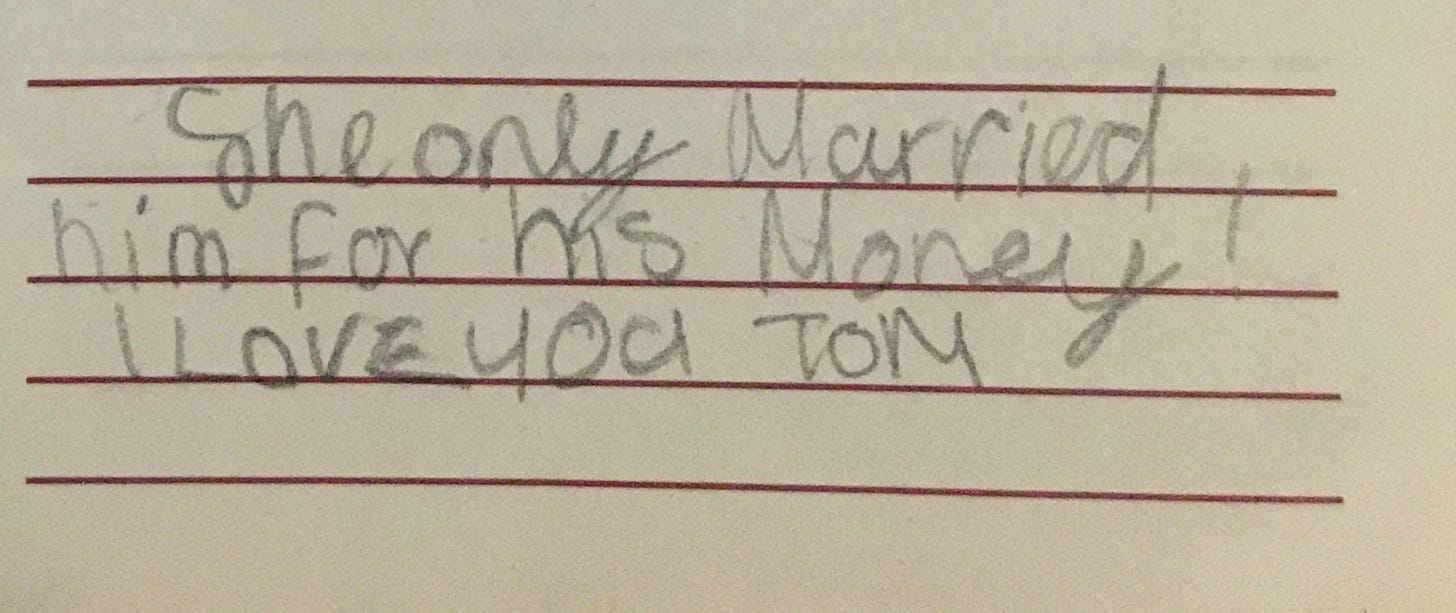 She only Married
him for his Money!
I LOVE YOU TOM